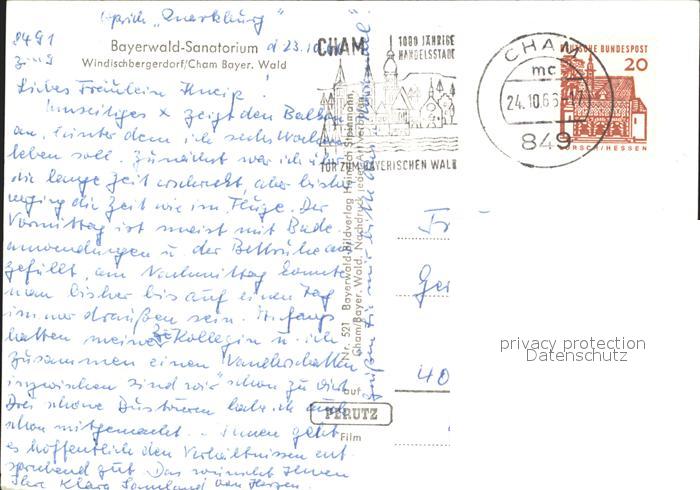 sprich „Quarkburg"
8491
Zi. 9
Bayerwald-Sanatorium d 23.10.66
Windischbergerdorf/Cham Bayer. Wald
Liebes Fräulein Kneip!
Umseitiges x zeigt den Balkon
an, hinter dem ich sechs Wochen
leben soll. Zunächst war ich über
die lange Zeit erschreckt, aber bisher
verging die Zeit wie im Fluge. Der
Vormittag ist meist mit Bade-
anwendungen u der Bettruhe aus
gefüllt, am Nachmittag konnte
man bisher bis auf einen Tag
immer draußen sein. Anfangs
hatten meine Zi Kollegin u. ich
zusammen einen Wanderschatten
inzwischen sind wir schon zu viert
Drei schöne Bustouren habe ich auch
schon mitgemacht. – Ihnen geht
es hoffentlich den Verhältnissen ent-
sprechend gut. Das wünscht Ihnen
Ihre Klara von Herzen.
CHAM
1000 JÄHRIGE
HANDELSSTADT
TOR ZUM BAYERISCHEN WALD
CHAM
mc
24.10.66-17
849
DEUTSCHE BUNDESPOST
20
LORSCH/HESSEN
Nr. 521 Bayerwald-Bildverlag Heinrich Stegmann,
Cham/Bayer. Wald. Nachdruck jeder Art verboten.
auf
PERUTZ
Film
Fr
Gei
40
privacy protection
Datenschutz